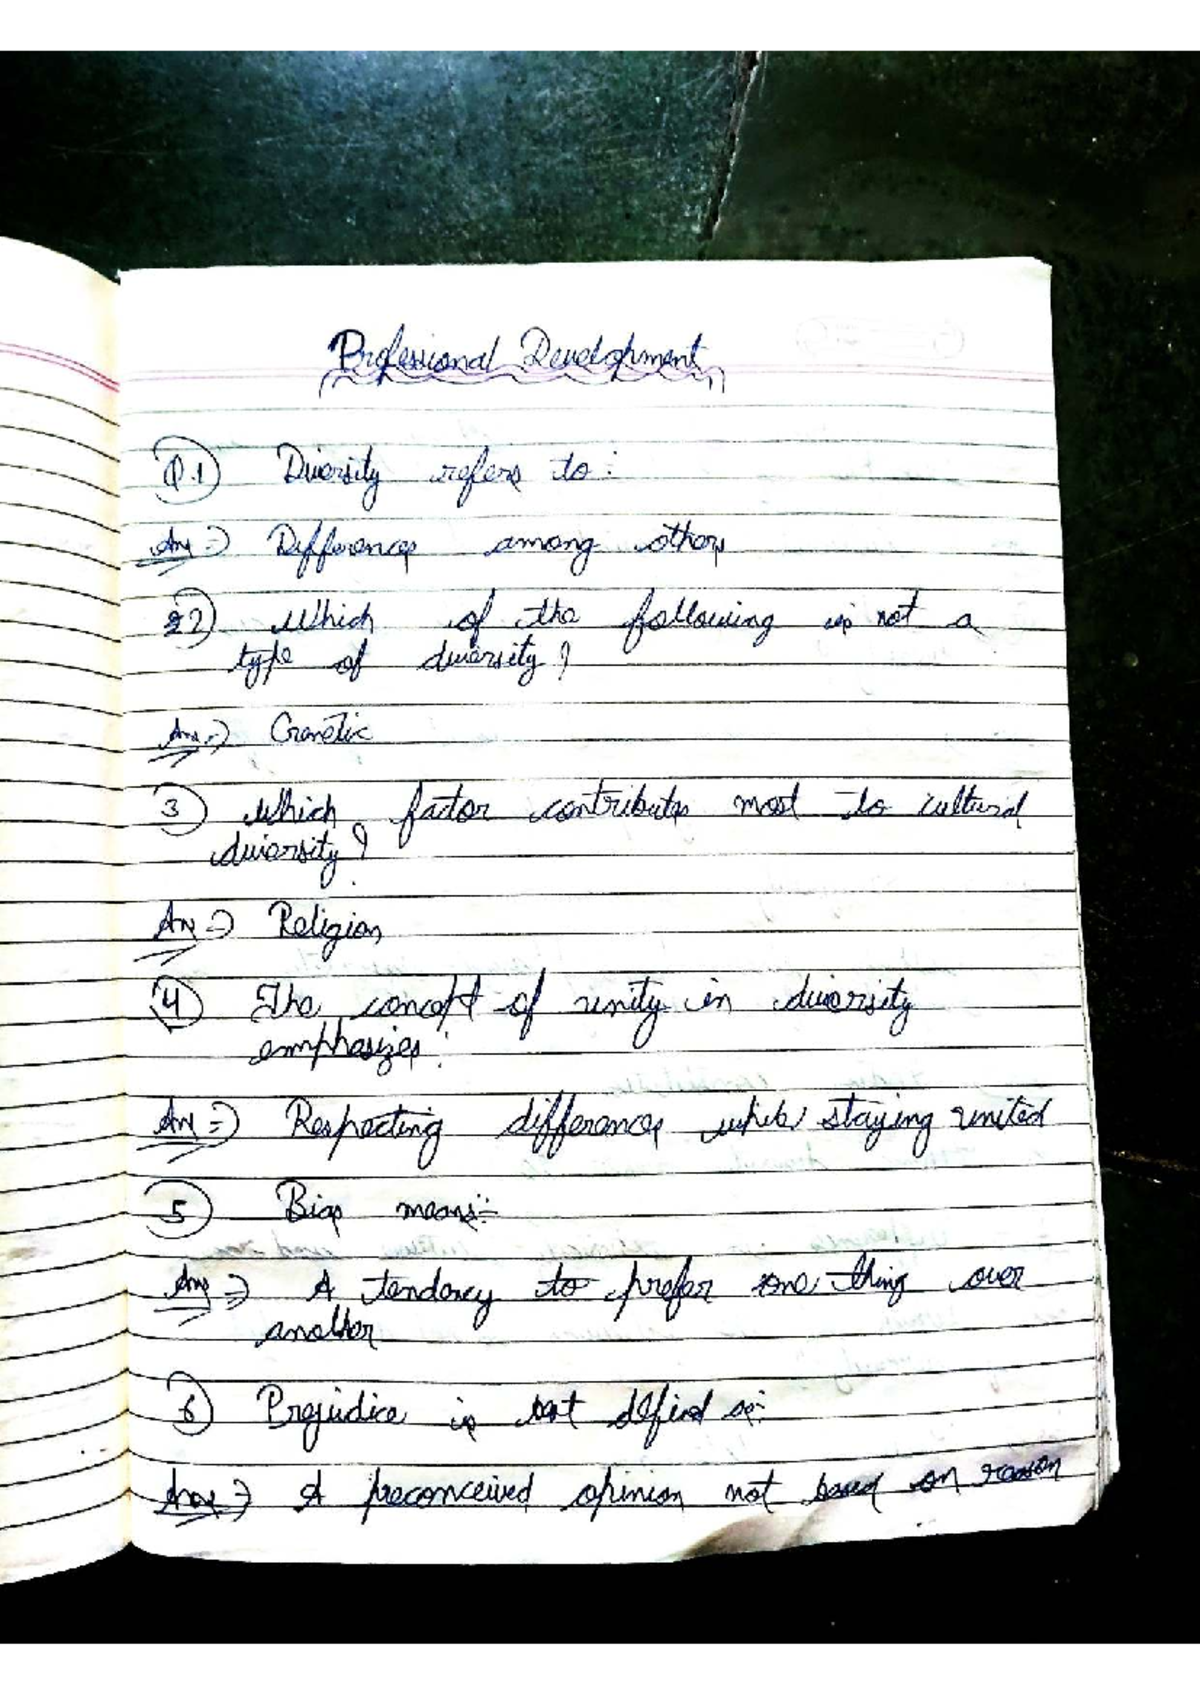 Professional Development
Q.1 Diversity refers to :
Ans => Differences among others
Q2) Which of the following is not a
type of diversity ?
Ans => Genetic
3) Which factor contributes most to cultural
diversity ?
Ans => Religion
4) The concept of unity in diversity
emphasizes :
Ans => Respecting differences while staying united
5) Bias means :-
Ans => A tendency to prefer one thing over
another
6) Prejudice is best defined as :
Ans => A preconceived opinion not based on reason